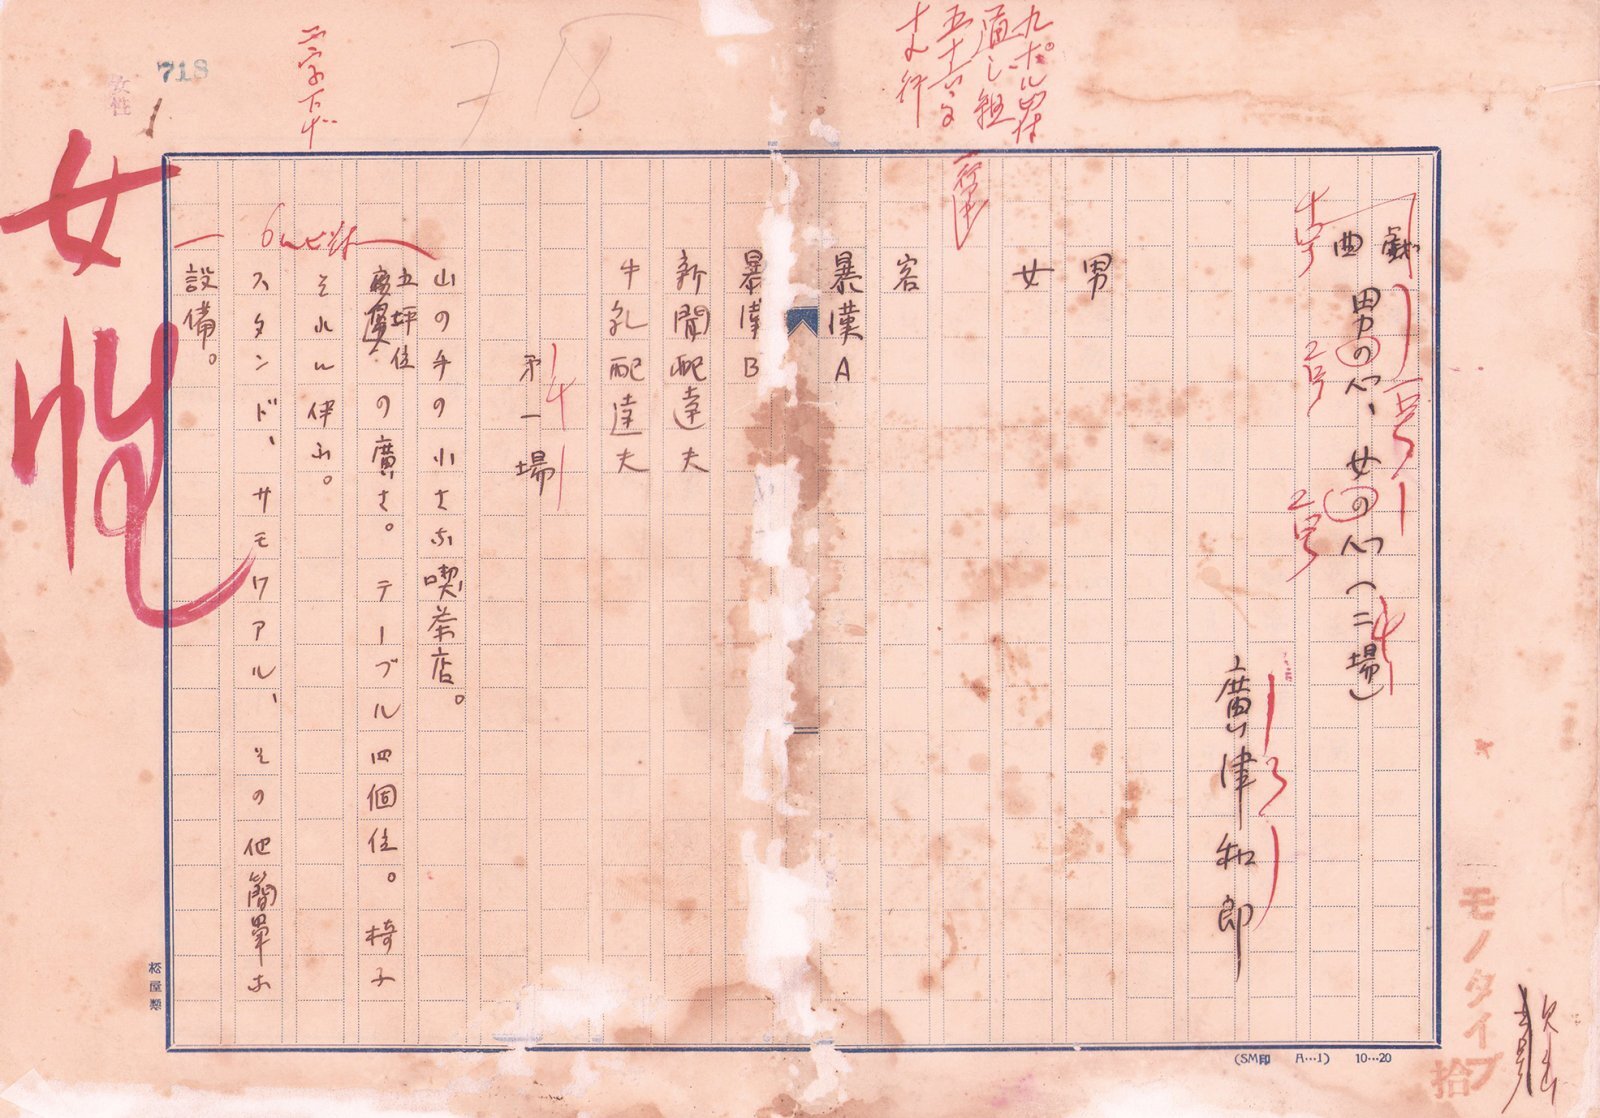 戯曲 男の心、女の心(二場)
廣津和郎
男
女
客
暴漢A
暴漢B
新聞配達夫
牛乳配達夫
第一場
山の手の小さな喫茶店。
五坪位の廣さ。テーブル四個位。椅子
それに伴ふ。
スタンド、サモワアル、その他簡単な
設備。
九ポ
直し組
一行
二字下ゲ
718
718
女性
女性
2号
2号
松屋製
(SM印 A…1) 10…20
モノタイプ
拾